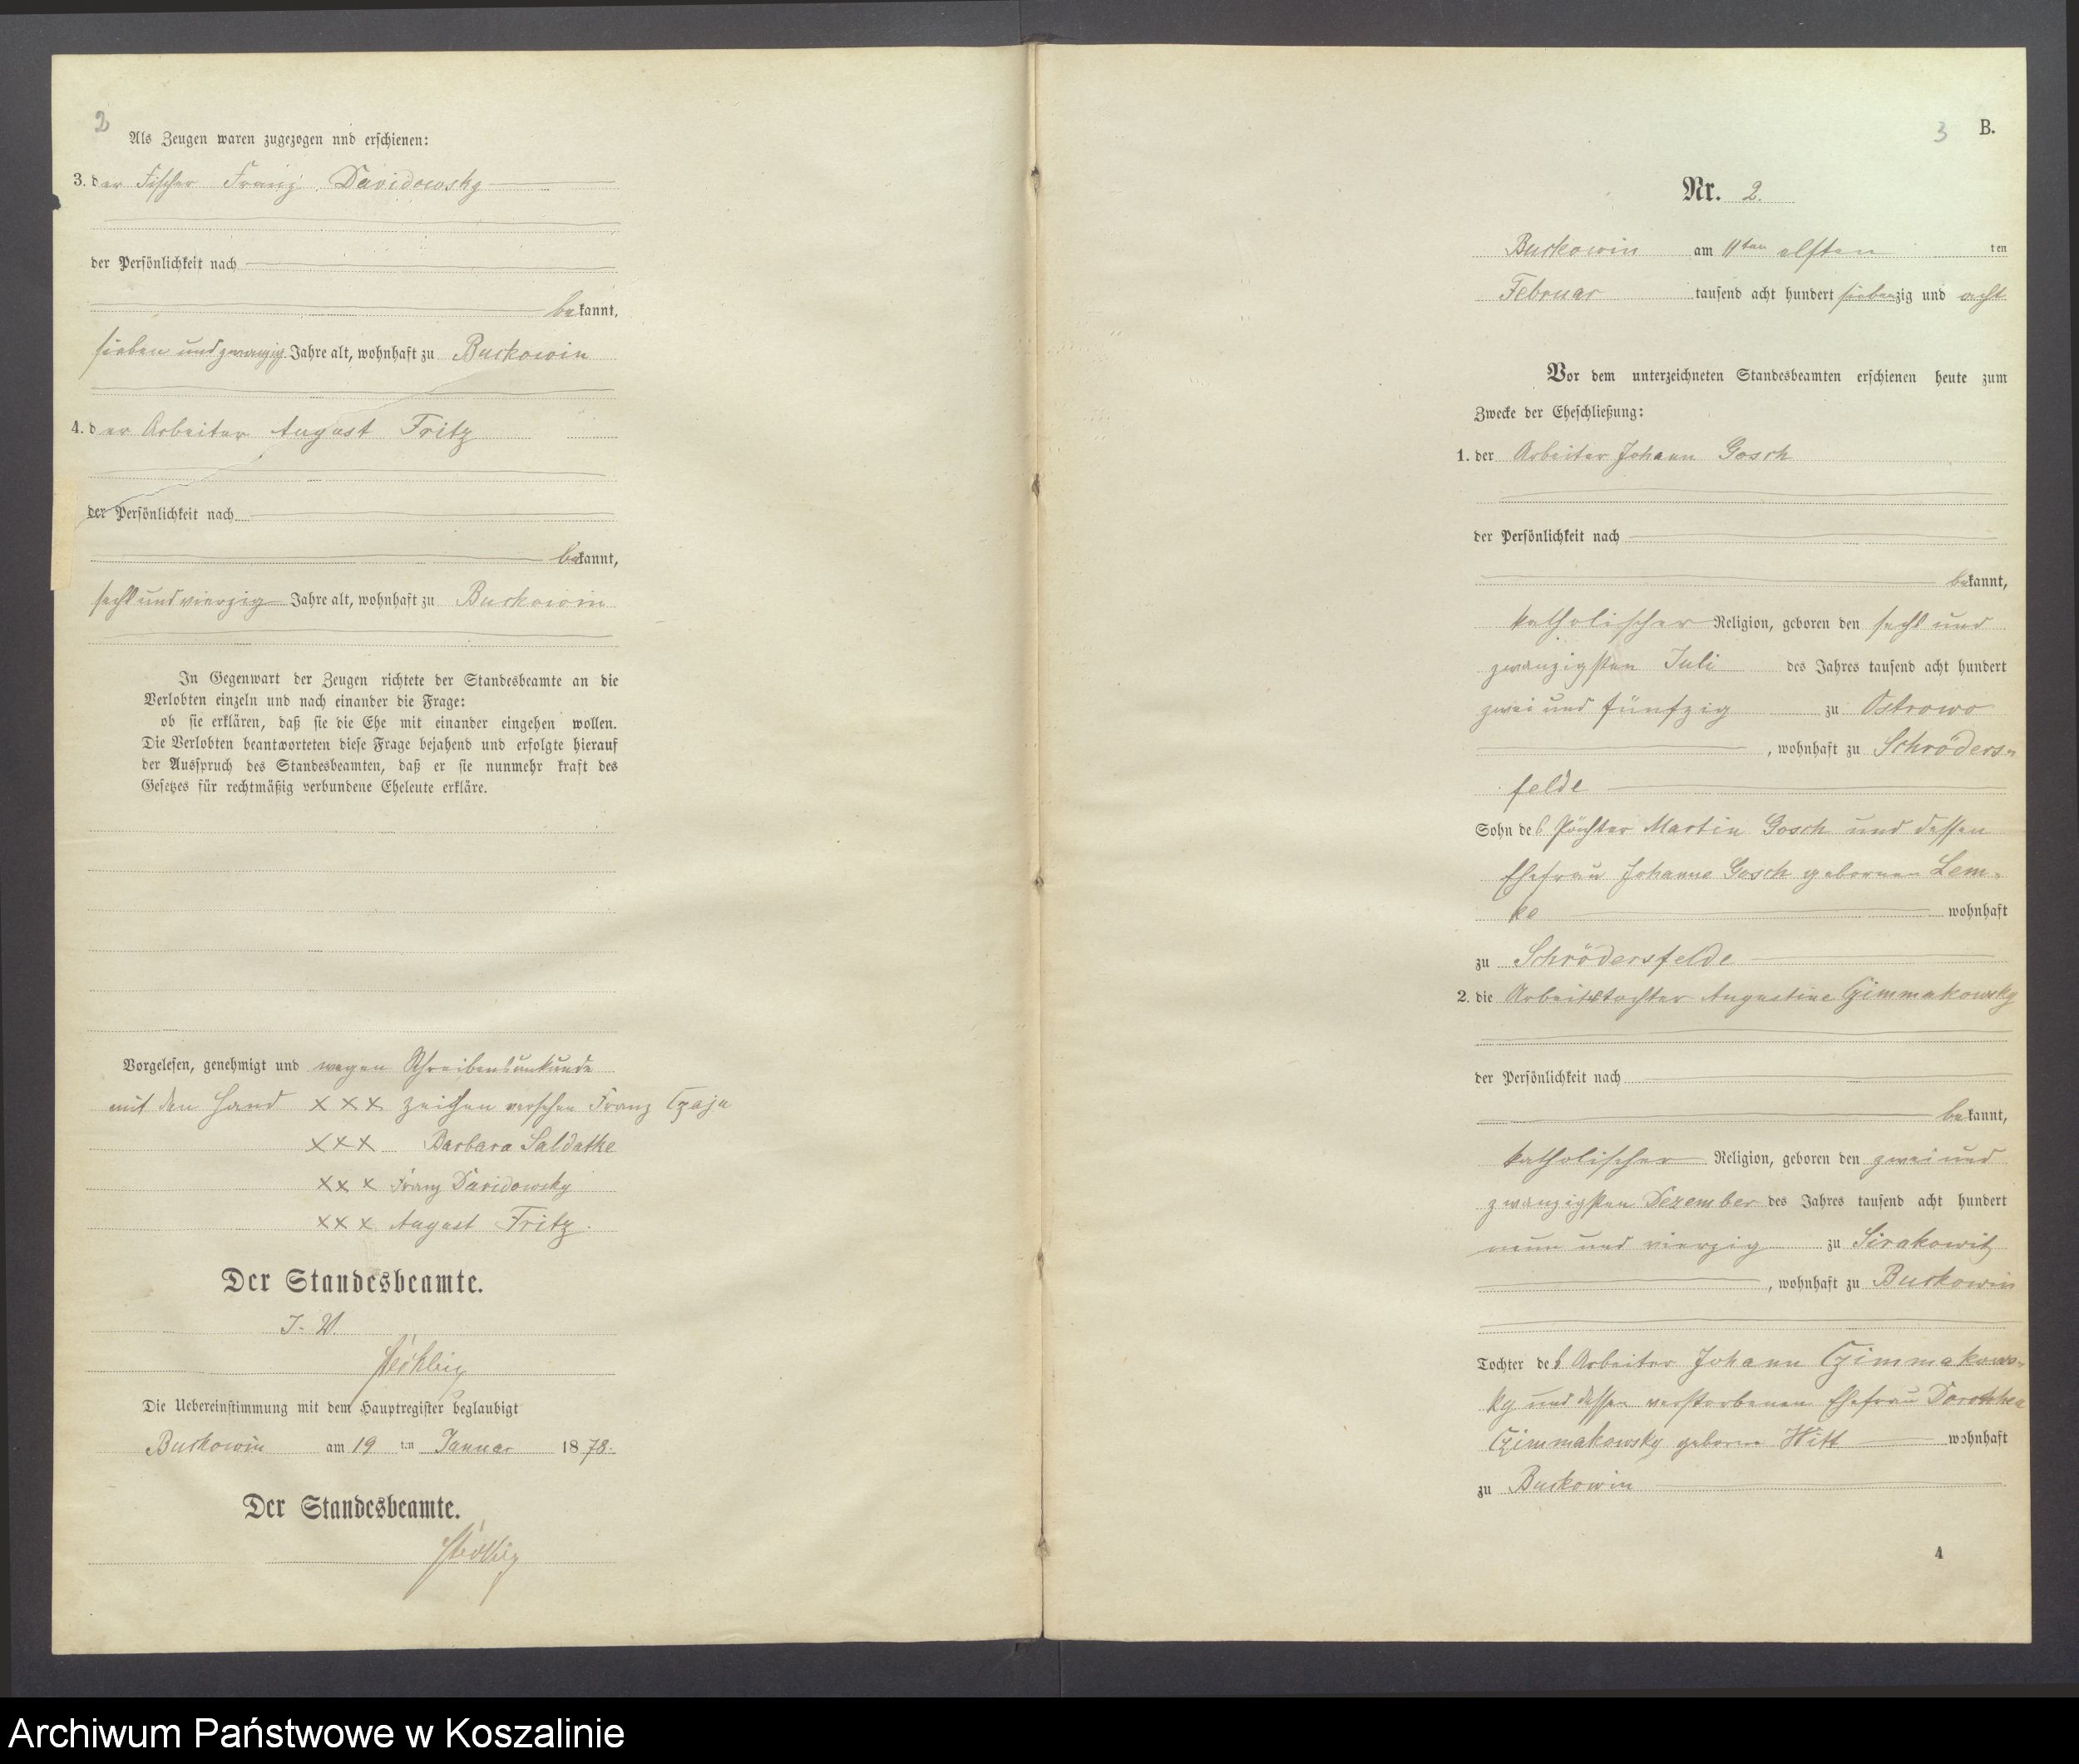 2
Als Zeugen waren zugezogen nnd erschienen:
3. der Fischer Franz Davidowsky
der Persönlichkeit nach
bekannt,
sieben und zwanzig Jahre alt, wohnhaft zu Buckowin
4. der Arbeiter August Fritz
der Persönlichkeit nach
bekannt,
sechs und vierzig Jahre alt, wohnhaft zu Buckowin
In Gegenwart der Zeugen richtete der Standesbeamte an die
Verlobten einzeln und nach einander die Frage:
ob sie erklären, daß sie die Ehe mit einander eingehen wollen.
Die Verlobten beantworteten diese Frage bejahend und erfolgte hierauf
der Ausspruch des Standesbeamten, daß er sie nunmehr kraft des
Gesetzes für rechtmäßig verbundene Eheleute erkläre.
Vorgelesen, genehmigt und wegen Schreibensunkunde
mit den Hand xxx zeichen versehen Franz Czaja
xxx Barbara Saldatke
xxx Franz Davidowsky
xxx August Fritz.
Der Standesbeamte.
J. V.
Die Uebereinstimmung mit dem Hauptregister beglaubigt
Buckowin am 19 ten Januar 1878.
Der Standesbeamte.
3 B.
Nr. 2.
Buckowin am 11ten elften ten
Februar tausend acht hundert siebenzig und acht
Vor dem unterzeichneten Standesbeamten erschienen heute zum
Zwecke der Eheschließung:
1. der Arbeiter Johann Gosch
der Persönlichkeit nach
bekannt,
katholischer Religion, geboren den sechs und
zwanzigsten Juli des Jahres tausend acht hundert
zwei und fünfzig zu Ostrowo
, wohnhaft zu Schröders-
felde
Sohn des Pächter Martin Gosch und dessen
Ehefrau Johanne Gosch gebornen Lem-
ke wohnhaft
zu Schrödersfelde
2. die Arbeitstochter Augustine Czimmakowsky
der Persönlichkeit nach
bekannt,
katholischer Religion, geboren den zwei und
zwanzigsten Dezember des Jahres tausend acht hundert
neun und vierzig zu Sirakowitz
, wohnhaft zu Buckowin
Tochter des Arbeiter Johann Czimmakows-
ky und dessen verstorbenen Ehefrau Dorothea
Czimmakowsky geborne Witt wohnhaft
zu Buckowin
1
Archiwum Państwowe w Koszalinie